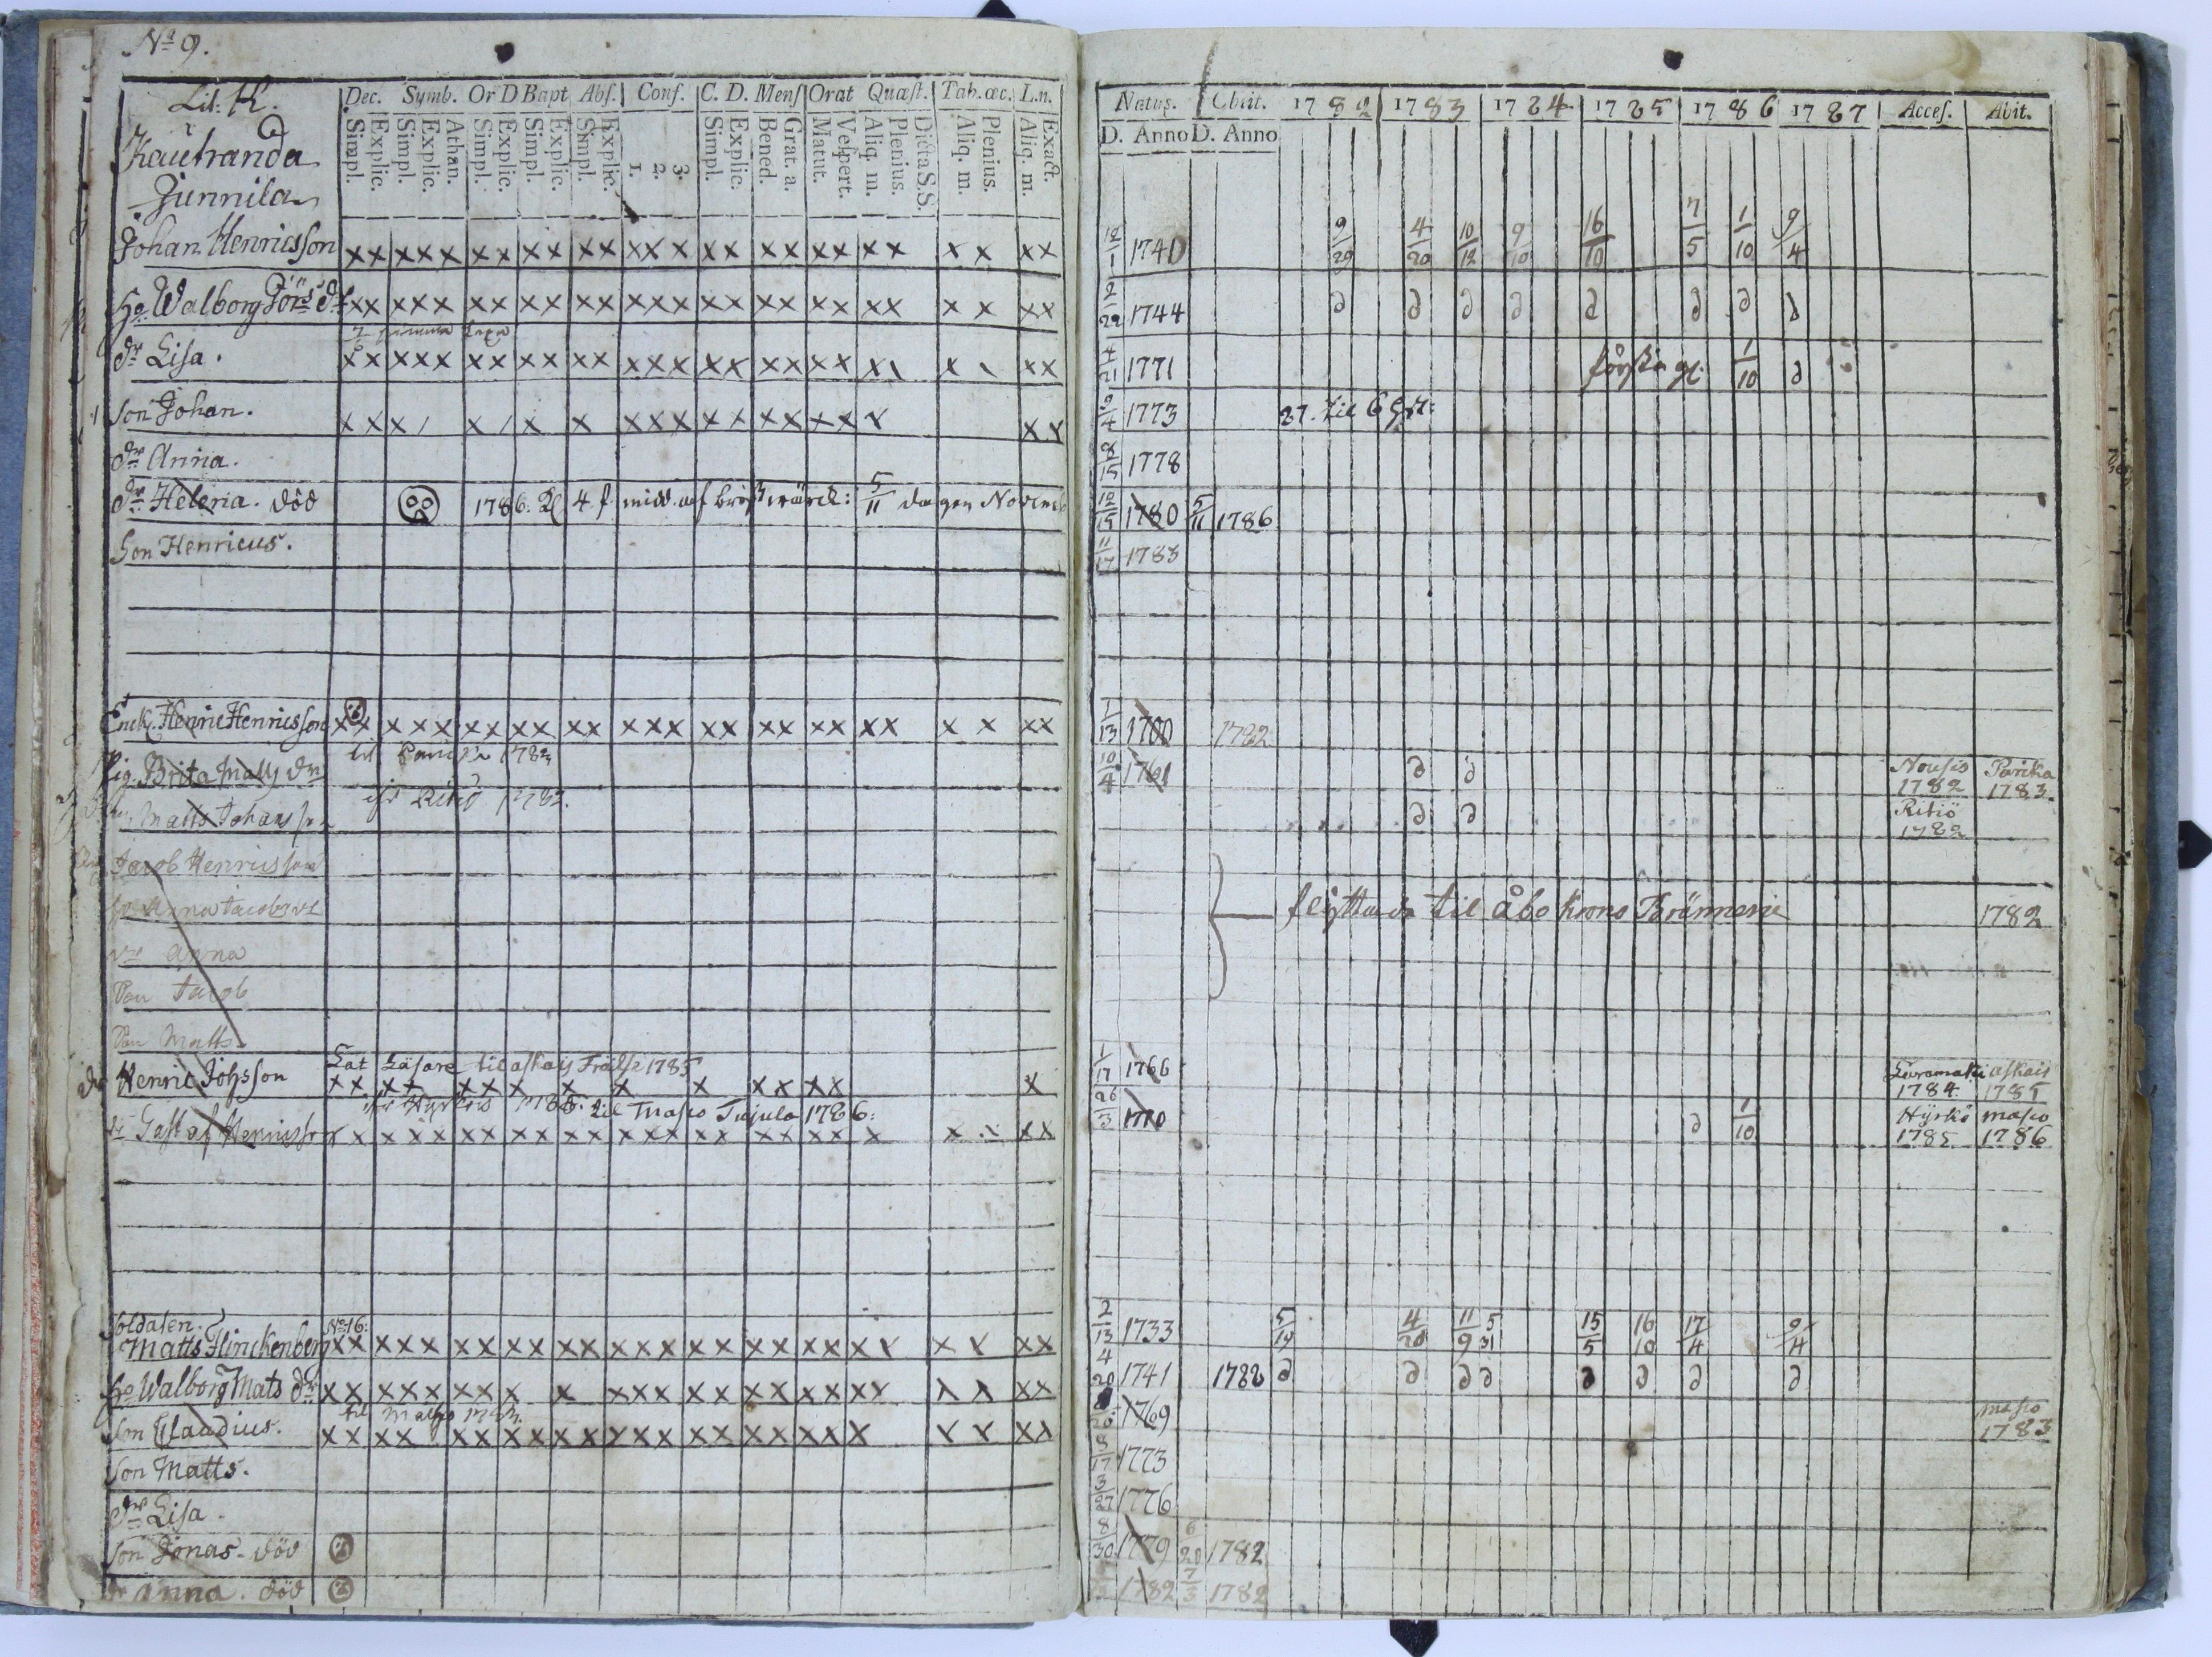 No 9.
Lit: K.
Kautranda
Junnila
Dec. Symb. Or D Bapt Abs. Conf. C. D. Mens Orat Quæst. Tab. œc. L.n.
Simpl. Explic. Simpl. Explic. Athan. Simpl. Explic. Simpl. Explic. Simpl. Explic. 1. 2. 3. Simpl. Explic. Bened. Grat. a. Matut. Vespert. Aliq. m. Plenius. Dicta S.S. Aliq. m. Plenius. Aliq. m. Exact.
Natus. Obiit. 1782 1783 1784 1785 1786 1787 Acces. Abit.
D. Anno D. Anno
Johan Henricsson xx xxx xx xx xx xxx xx xx xx xx x x xx 12/1 1740 9/29 4/20 10/12 9/10 16/10 7/5 1/10 9/4
Ho Walborg Jörs dr xx xxx xx xx xx xxx xx xx xx xx x x xx 2/22 1744 d d d d d d d d
dr Lisa. xx xxx xx xx xx xxx xx xx xx x x xx 4/21 1771 första g. 1/10 d
Son Johan. 9/4 1773 27. til
dr Anna. 8/15 1778
dr Helena. död 1786. 4 f midd. af 5/11 dagen Novemb 12/15 1780 5/11 1786
Son Henricus. 11/17 1783
Enck. Henric Henricsson xx xxx xx xx xx xxx xx xx xx xx x x xx 1/13 1700 1782
til 1783
Pig. Brita Matts dr 10/4 1761 d d Nousis 1782 Parika 1783.
ifr Ritiö 1782.
Matts Johansson d d Ritiö 1782
Jacob Henricsson
ho Anna Jacobs dr flyttade til Åbo Krono Bränneri 1782
dr Anna
Son Jacob
Son Matts
Lat Läsare til askais Frälse 1785
Henric Johsson 1/17 1766 1784. askais 1785
ifr Hyrkös 1785. til Masko Tujula 1786:
Gustaf Henricsson 26/3 1770 d 1/10 Hyrkö 1785 masko 1786
Soldaten. No 16:
Matts Flinckenberg xx xxx xx xx xx xxx xx xx xx xx x x xx 2/13 1733 5/19 4/20 11/9 5/31 15/5 16/10 17/4 9/4
Ho Walborg Mats dr xx xxx xx x x xxx xx xx xx xx x x xx 4/20 1741 1788 d d d d d d d d
til Masko 1783.
Son Claudius. 1769 masko 1783
Son Matts. 8/17 1773
dr Lisa. 3/27 1776
Son Jonas. död 8/30 1779 6/20 1782
dr Anna. död 1782 7/3 1782